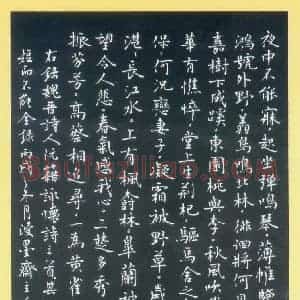 夜中不能寐起坐彈鳴琴薄帷鑒
鴻號外野翔鳥鳴北林徘徊將何見
嘉樹下成蹊東園桃與李秋風吹
華有憔悴堂上生荊杞驅馬舍之
保何況戀妻子凝霜被野草歲
湛〻長江水上有楓樹林皋蘭被
望令人悲春氣感我心三楚多秀
振芬芳高蔡相追尋一為黃雀
右錄魏晉詩人阮籍詠懷詩三首其
月浸墨齋主